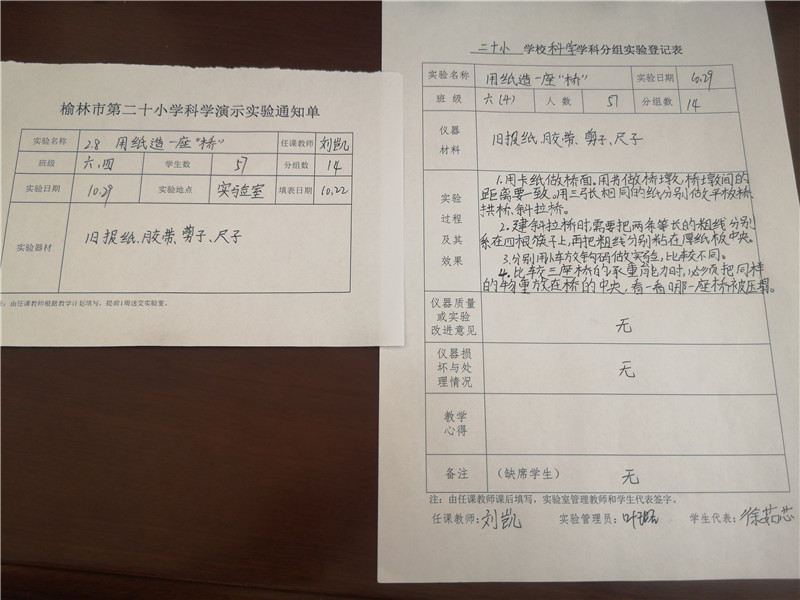 榆林市第二十小学科学演示实验通知单
实验名称 28 用纸造一座"桥" 任课教师 刘凯
班级 六.四 学生数 57 分组数 14
实验日期 10.29 实验地点 实验室 填表日期 10.22
实验器材 旧报纸、胶带、剪子、尺子
由任课教师根据教学计划填写，提前1周送交实验室。
二十小 学校科学学科分组实验登记表
实验名称 用纸造一座"桥" 实验日期 10.29
班 级 六(4) 人 数 57 分组数 14
仪器
材料
旧报纸、胶带、剪子、尺子
实验
过程
及其
效果
1.用卡纸做桥面.用书做桥墩,桥墩间的
距离要一致.用三张相同的纸分别做平板桥.
拱桥.斜拉桥。
2.建斜拉桥时,需要把两条等长的粗线分别
系在四根筷子上,再把粗线分别粘在厚纸板中央。
3.分别用小车放钩码做实验,比较不同。
4.比较三座桥的承重能力时,必须把同样
的物重放在桥的中央,看一看哪一座桥被压塌.
仪器质量
或实验
改进意见
无
仪器损
坏与处
理情况
无
教学
心得
备注 （缺席学生） 无
注：由任课教师课后填写，实验室管理教师和学生代表签字。
任课教师：刘凯 实验管理员：叶 学生代表：徐茹芯